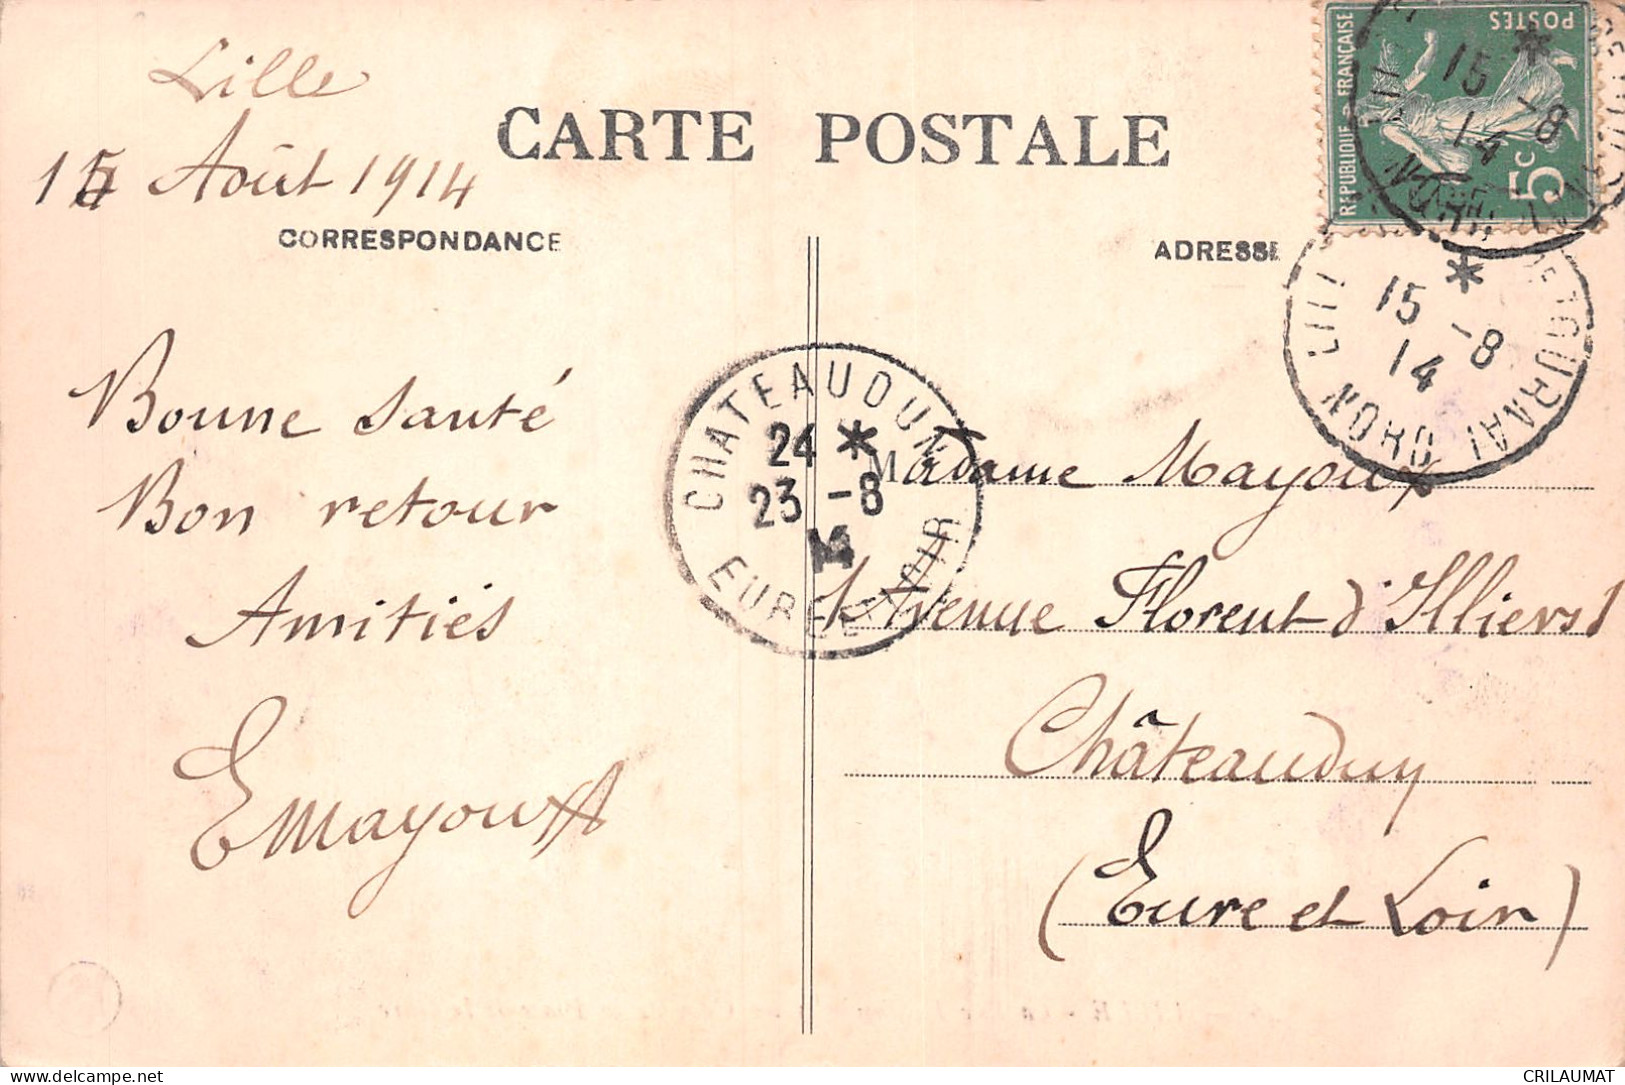 Lille
15 Août 1914
CARTE POSTALE
CORRESPONDANCE
ADRESSE
REPUBLIQUE FRANÇAISE
POSTES
5c
15 *
-8
14
NORD
15 *
-8
14
NORD
Bonne Santé
Bon retour
Amitiés
EMayoux
CHATEAUDUN
24 *
23 -8
14
EURE-ET-LOIR
Madame Mayoux
1 Avenue Florent d'Illiers 1
Châteaudun
(Eure et Loir)
CRILAUMAT